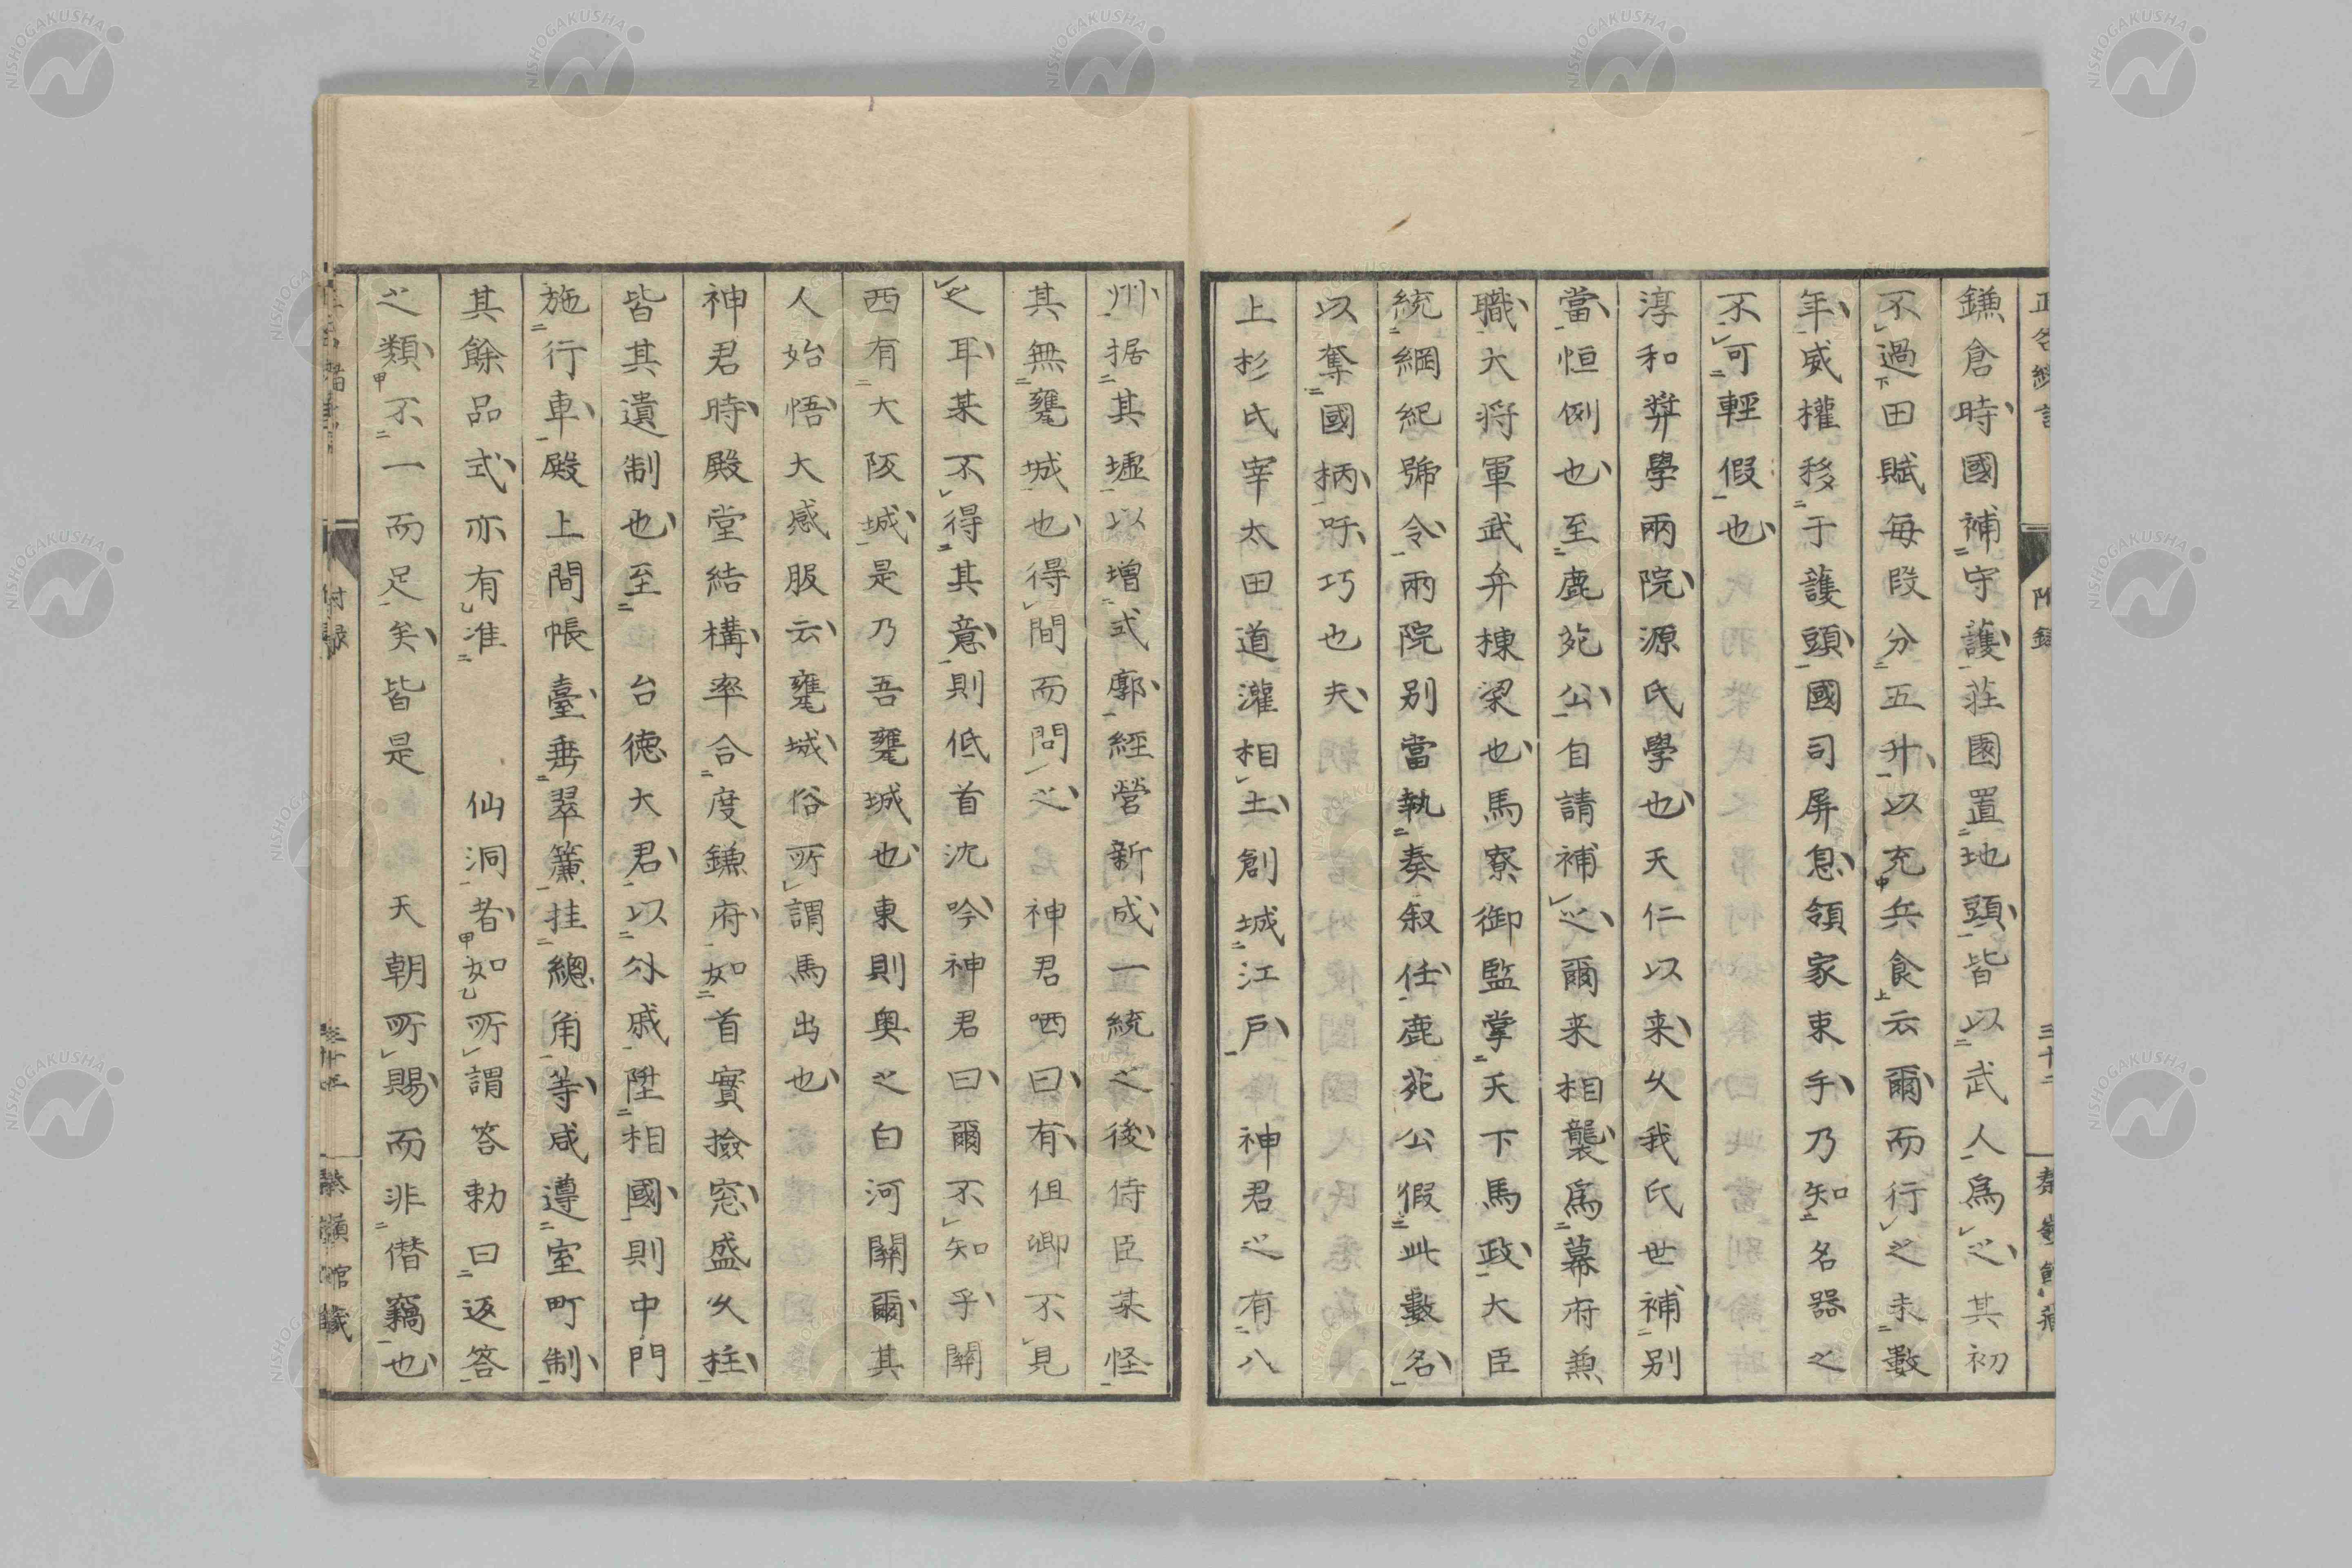 鎌倉時國補守護莊國置地頭皆以武人爲之其初
不過田賦每段分五升以充兵食云爾而行之未數
年威權移于護頭國司屏息領家束手乃知名器之
不可輕假也
淳和弉學兩院源氏學也天仁以来久我氏世補別
當恒例也至鹿苑公自請補之爾来相襲爲幕府兼
職大将軍武弁棟梁也馬寮御監掌天下馬政大臣
統綱紀號令兩院別當執奏叙任鹿苑公假此數名
以奪國柄吁巧也夫
上杉氏宰太田道灌相土創城江戸神君之有八
州据其墟以增式廓經營新成一統之後侍臣某怪
其無甕城也得間而問之神君哂曰有但卿不見
之耳某不得其意則低首沈吟神君曰爾不知乎關
西有大阪城是乃吾甕城也東則奥之白河關爾其
人始悟大感服云甕城俗所謂馬出也
神君時殿堂結構率合度鎌府如首實撿窓盛久柱
皆其遺制也至台德大君以外戚陞相國則中門
施行車殿上間帳臺垂翠簾挂總角等咸遵室町制
其餘品式亦有准仙洞者如所謂答勅曰返答
之類不一而足矣皆是天朝所賜而非僭竊也
附録